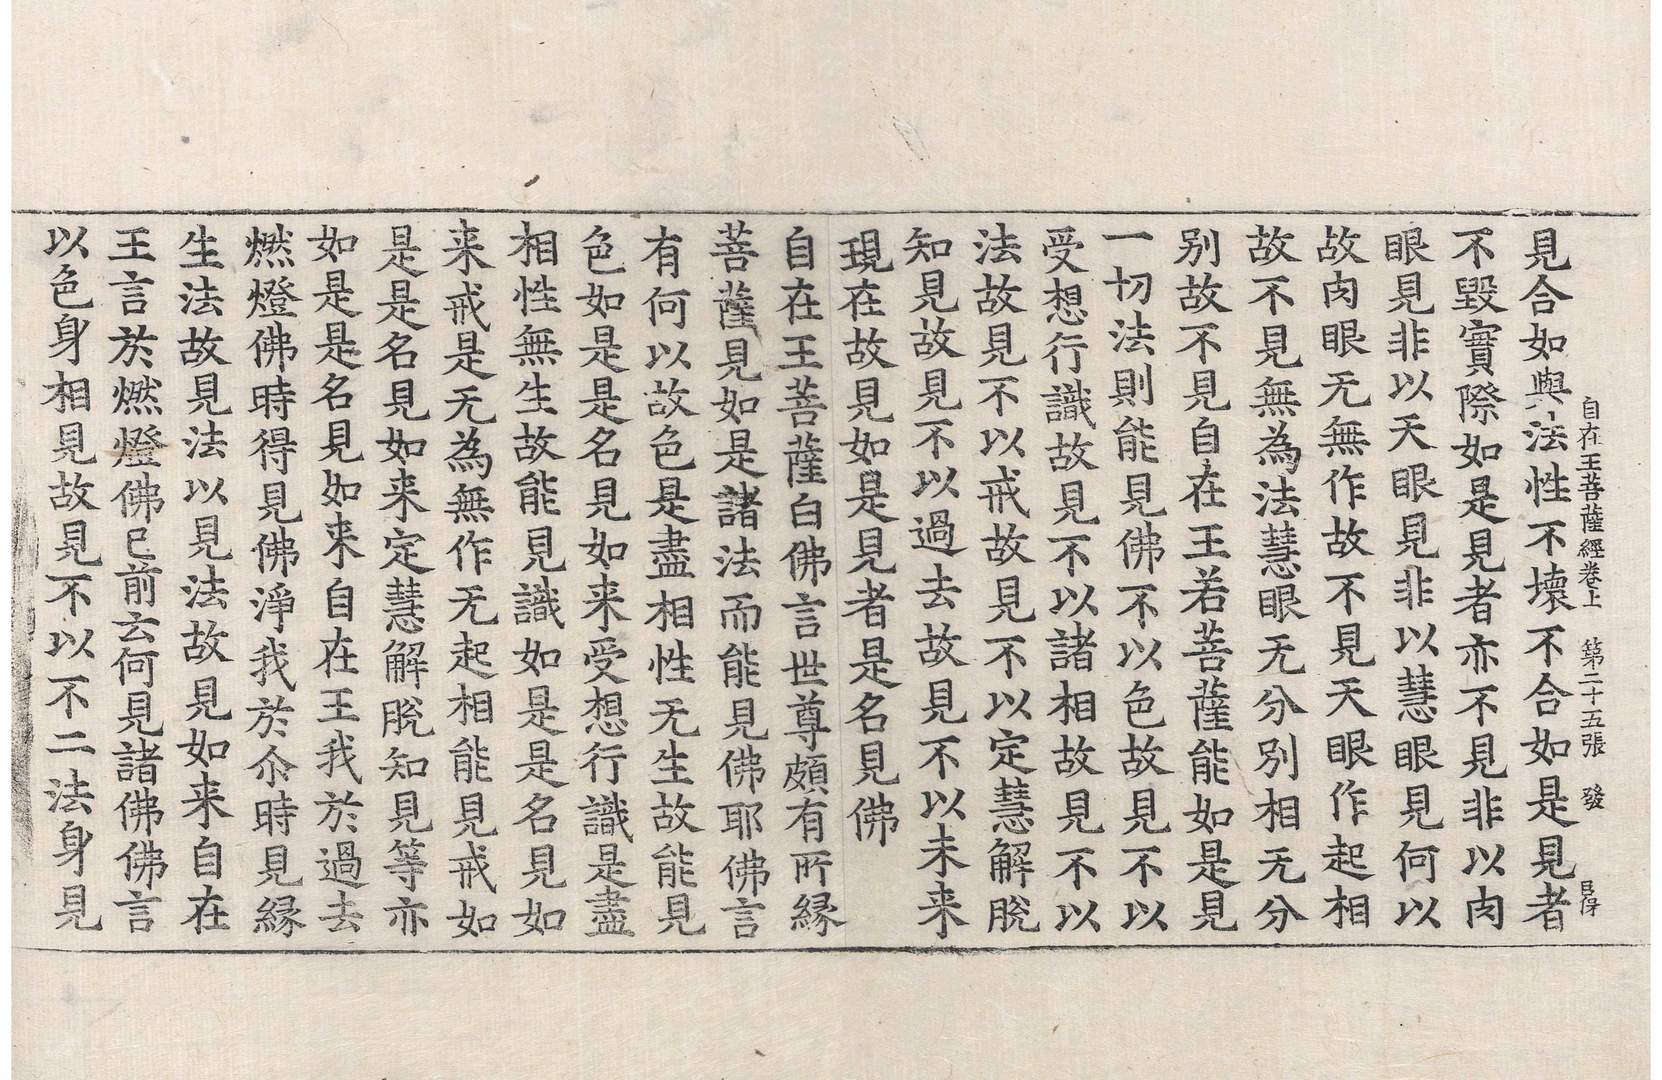 自在王菩薩經卷上　第二十五張　發
見合如與法性不壞不合如是見者
不毀實際如是見者亦不見非以肉
眼見非以天眼見非以慧眼見何以
故肉眼无無作故不見天眼作起相
故不見無為法慧眼无分別相无分
别故不見自在王若菩薩能如是見
一切法則能見佛不以色故見不以
受想行識故見不以諸相故見不以
法故見不以戒故見不以定慧解脫
知見故見不以過去故見不以未来
現在故見如是見者是名見佛
自在王菩薩白佛言世尊頗有所緣
菩薩見如是諸法而能見佛耶佛言
有何以故色是盡相性无生故能見
色如是是名見如来受想行識是盡
相性無生故能見識如是是名見如
来戒是无為無作无起相能見戒如
是是名見如来定慧解脫知見等亦
如是是名見如来自在王我於過去
燃燈佛時得見佛淨我於尒時見緣
生法故見法以見法故見如来自在
王言於燃燈佛已前云何見諸佛佛言
以色身相見故見不以不二法身見